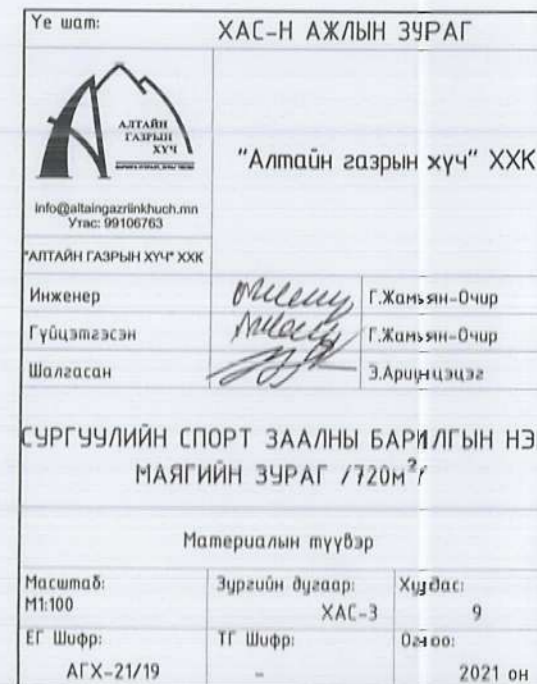 Үе шат:
ХАС-Н АЖЛЫН ЗУРАГ
АЛТАЙН
ГАЗРЫН
ХҮЧ
info@altaingazriinkhuch.mn
Утас: 99106763
"АЛТАЙН ГАЗРЫН ХҮЧ" ХХК
"Алтайн газрын хүч" ХХК
Инженер
Г.Жамъян-Очир
Гүйцэтгэсэн
Г.Жамъян-Очир
Шалгасан
Э.Ариунцэцэг
СУРГУУЛИЙН СПОРТ ЗААЛНЫ БАРИЛГЫН НЭ
МАЯГИЙН ЗУРАГ /720м²/
Материалын түүвэр
Масштаб:
М1:100
Зургийн дугаар:
ХАС-3
Хуудас:
9
ЕГ Шифр:
АГХ-21/19
ТГ Шифр:
-
Огноо:
2021 он